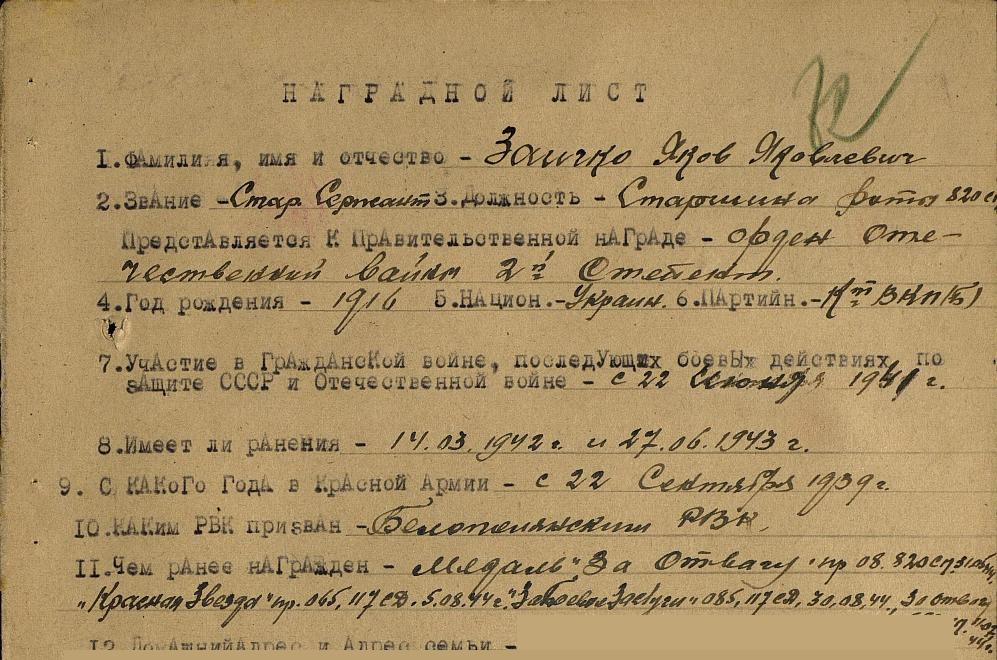 НАГРАДНОЙ ЛИСТ
1. Фамилия, имя и отчество - Заичко Яков Яковлевич
2. Звание - Стар. Сержант 3. Должность - Старшина роты 820 сп
Представляется к правительственной награде - орден Оте-
чественной Войны 2й Степени.
4. Год рождения - 1916 5. Национ. - Украин. 6. Партийн. - Кт ВКП(б)
7. Участие в Гражданской войне, последующих боевых действиях по
защите СССР и Отечественной войне - с 22 1941 г.
8. Имеет ли ранения - 14.03.1942 г. и 27.06.1943 г.
9. С какого года в Красной Армии - с 22 Сентября 1939 г.
10. Каким РВК призван - Белопольянским РВК.
11. Чем ранее награжден - Медаль "За Отвагу" пр 08. 820 сп
"Красная Звезда" пр. 065, 117 сд. 5.08.44 г. "За боевые Заслуги" 085, 117 сд, 30.08.44., За отвагу
44 г.
12. Домашний адрес и Адрес семьи -